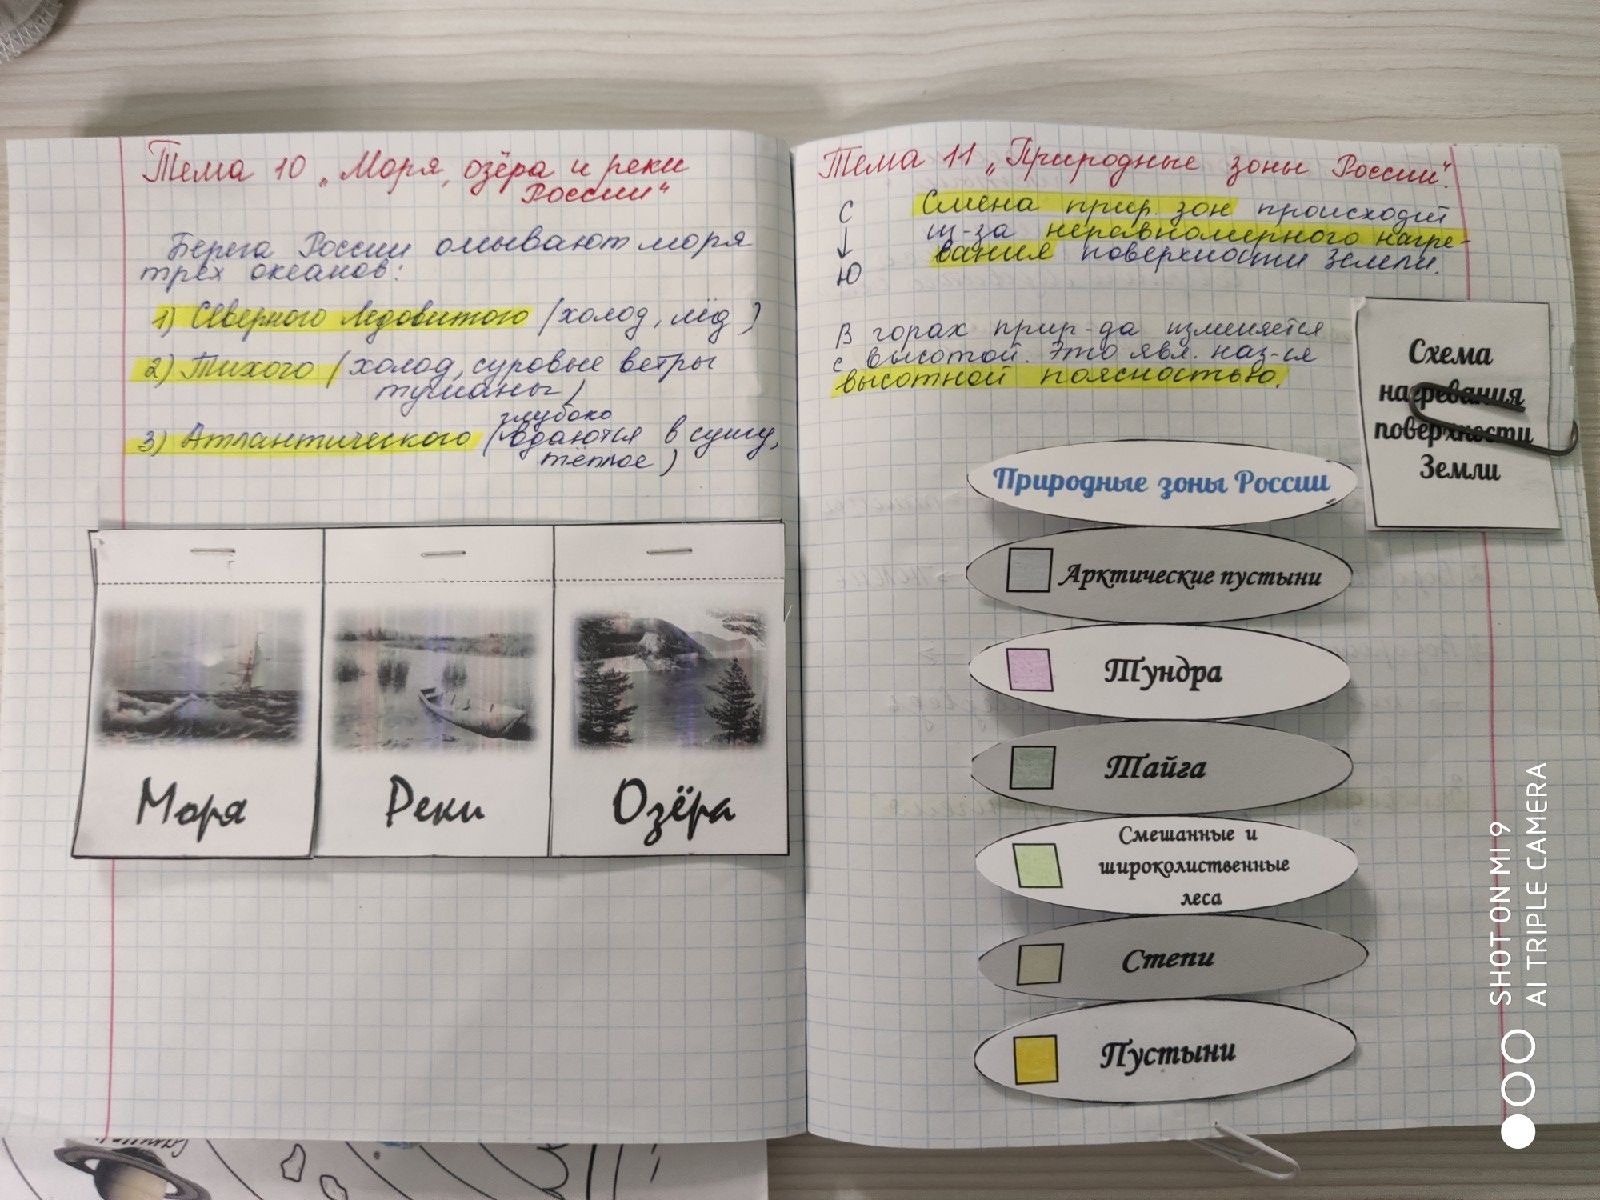 Тема 10 „Моря, озёра и реки
России“
Берега России омывают моря
трех океанов:
1) Северного Ледовитого (холод, лёд)
2) Тихого (холод, суровые ветры
туманы)
глубоко
3) Атлантического (вдаются в сушу,
тёплое)
Моря
Реки
Озёра
Тема 11 „Природные зоны России“.
С
↓
Ю
Смена прир. зон происходит
из-за неравномерного нагре-
вания поверхности Земли.
В горах прир-да изменяется
с высотой. Это явл. наз-ся
высотной поясностью.
Схема
нагревания
поверхности
Земли
Природные зоны России
Арктические пустыни
Тундра
Тайга
Смешанные и
широколиственные
леса
Степи
Пустыни
SHOT ON MI 9
AI TRIPLE CAMERA